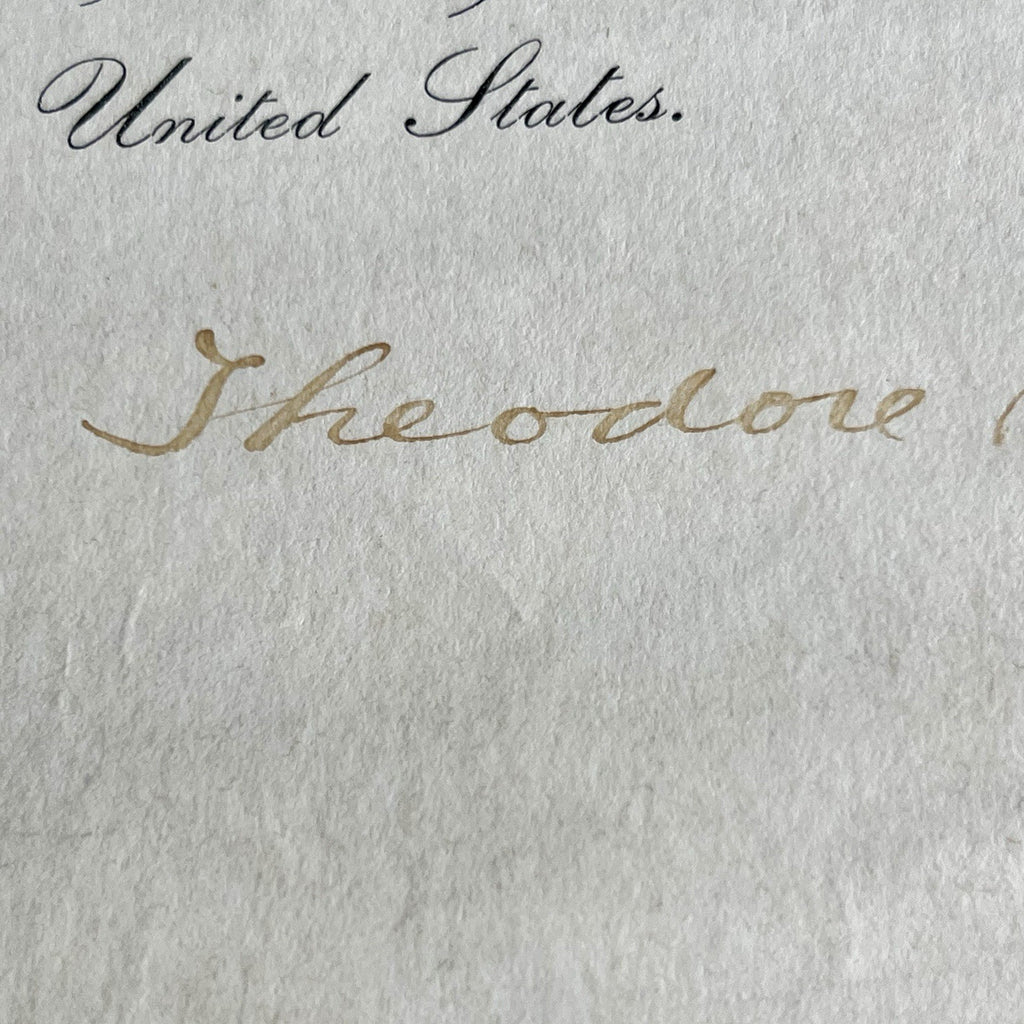 United States.
Theodore